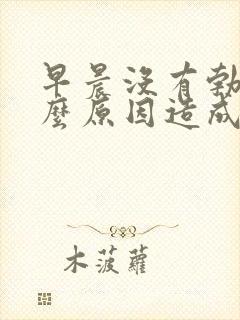 早晨沒有勃
麼原因造成
木菠蘿